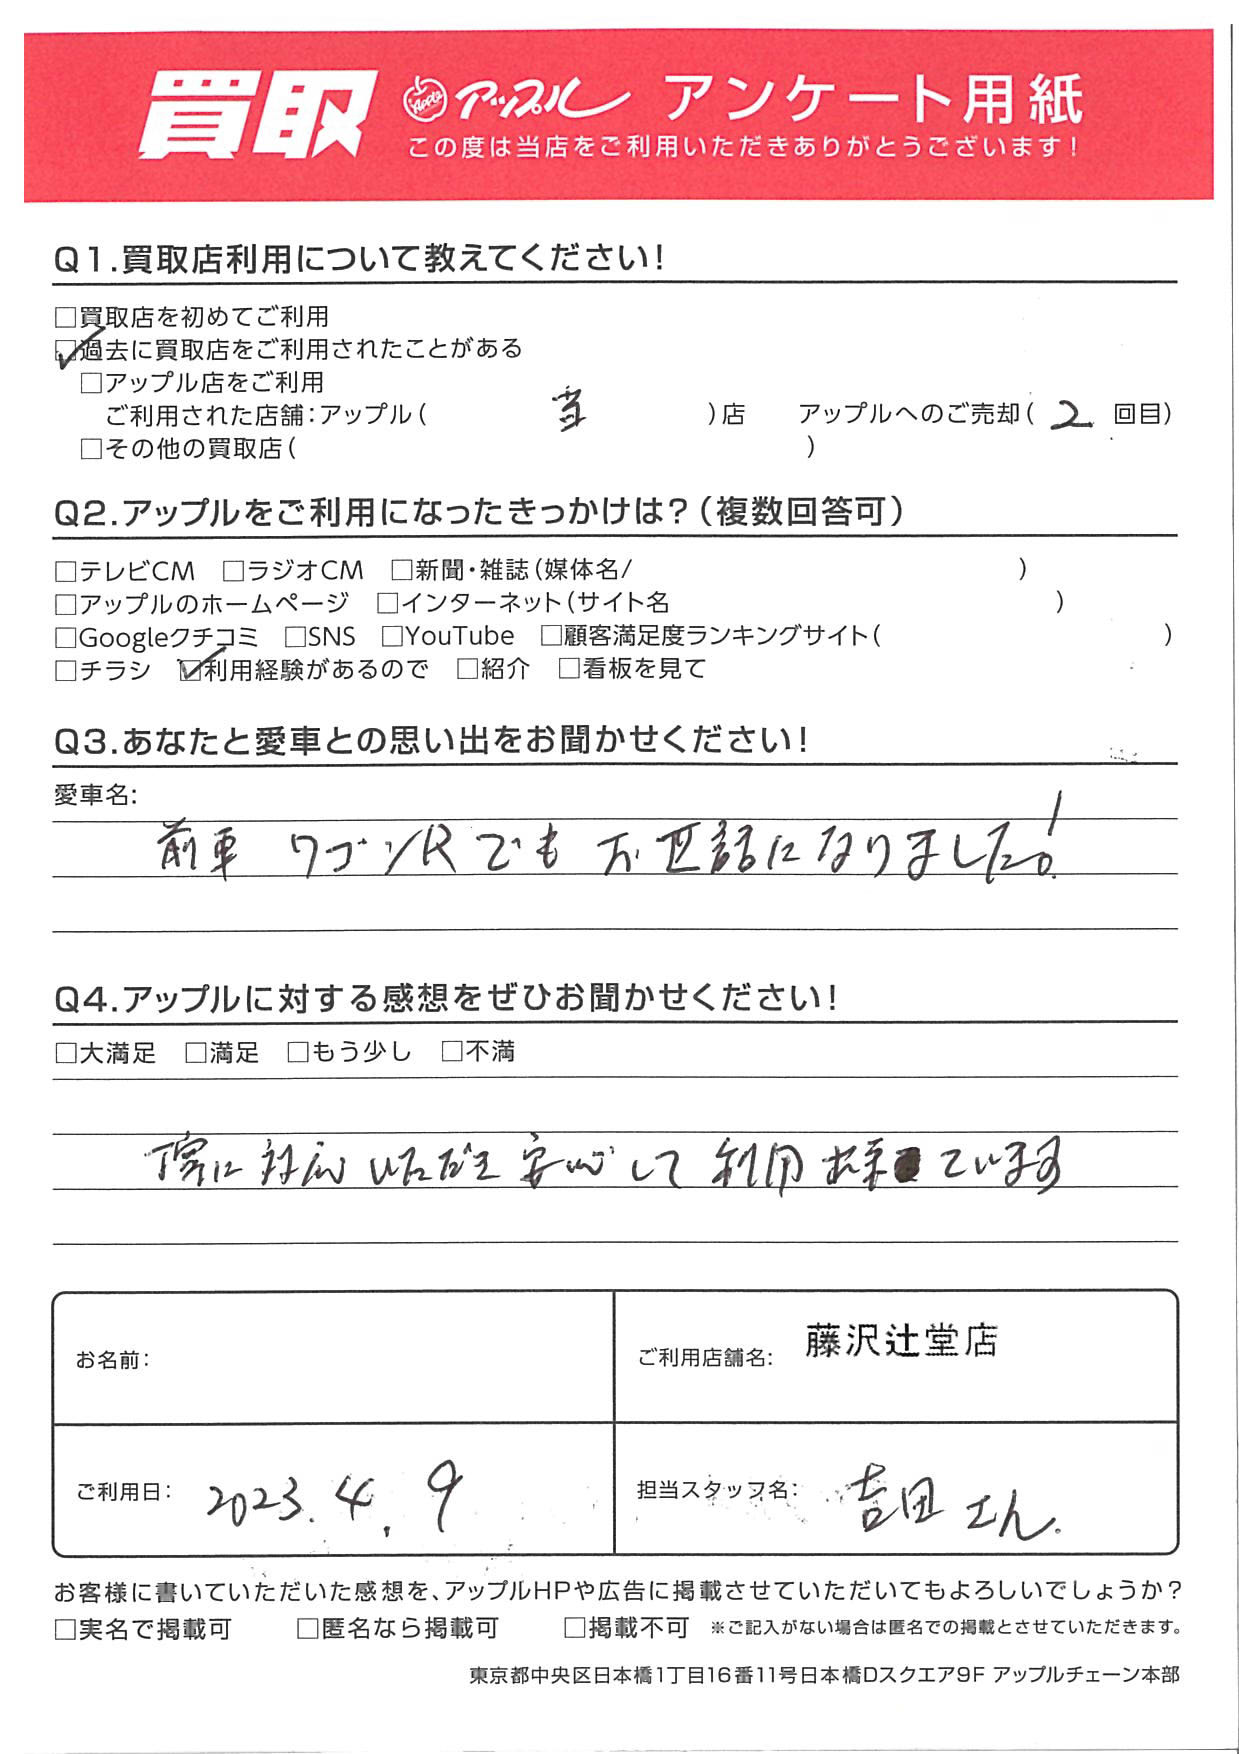 買取 Apple アップル アンケート用紙
この度は当店をご利用いただきありがとうございます!
Q1.買取店利用について教えてください!
□買取店を初めてご利用
☑過去に買取店をご利用されたことがある
□アップル店をご利用
ご利用された店舗:アップル( 当 )店 アップルへのご売却( 2 回目)
□その他の買取店( )
Q2.アップルをご利用になったきっかけは?(複数回答可)
□テレビCM □ラジオCM □新聞・雑誌(媒体名/ )
□アップルのホームページ □インターネット(サイト名 )
□Googleクチコミ □SNS □YouTube □顧客満足度ランキングサイト( )
□チラシ ☑利用経験があるので □紹介 □看板を見て
Q3.あなたと愛車との思い出をお聞かせください!
愛車名:
前車 ワゴンRでも お世話になりました!
Q4.アップルに対する感想をぜひお聞かせください!
□大満足 □満足 □もう少し □不満
丁寧に対応いただき安心して利用出来ています
お名前:
ご利用店舗名: 藤沢辻堂店
ご利用日: 2023.4.9
担当スタッフ名: 吉田さん.
お客様に書いていただいた感想を、アップルHPや広告に掲載させていただいてもよろしいでしょうか?
□実名で掲載可 □匿名なら掲載可 □掲載不可 ※ご記入がない場合は匿名での掲載とさせていただきます。
東京都中央区日本橋1丁目16番11号日本橋Dスクエア9F アップルチェーン本部